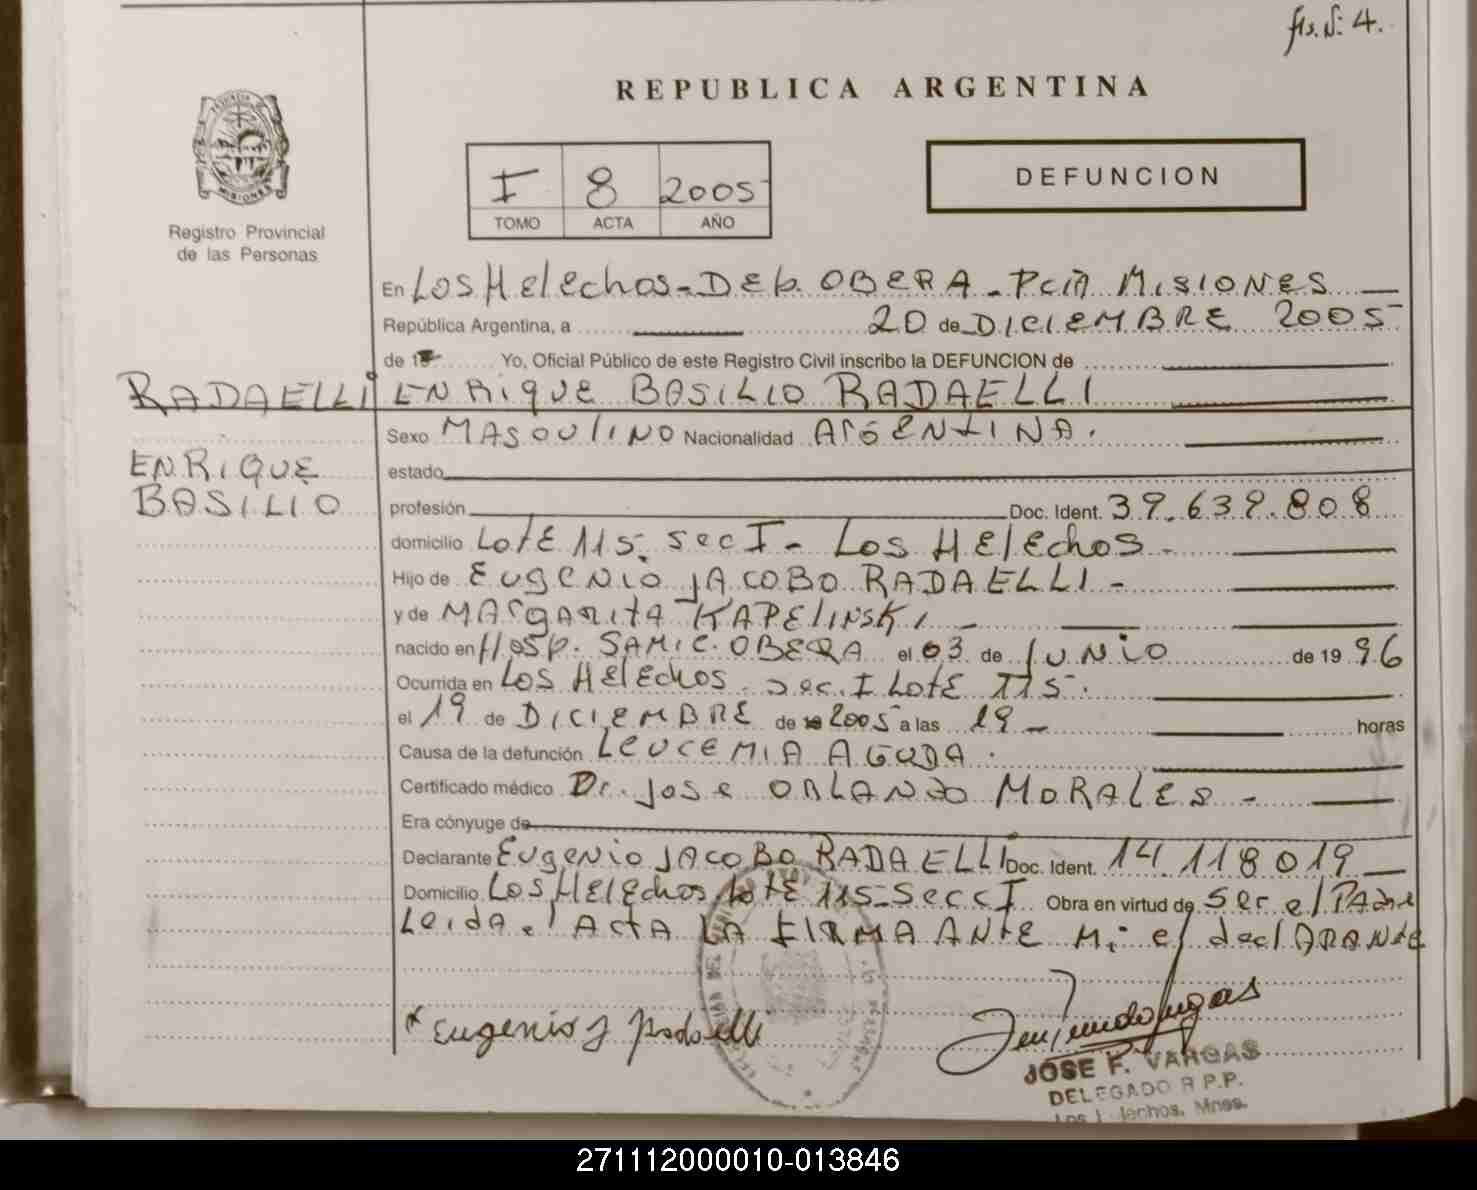 fs. N: 4.
REPUBLICA ARGENTINA
I 8 2005
TOMO ACTA AÑO
DEFUNCION
MISIONES
Registro Provincial
de las Personas
En Los Helechos - Dep. OBERA - Pcia MISIONES
República Argentina, a 20 de DICIEMBRE 2005
de 1 Yo, Oficial Público de este Registro Civil inscribo la DEFUNCION de
RADAELLI ENRIQUE BASILIO RADAELLI
Sexo MASCULINO Nacionalidad ARGENTINA.
ENRIQUE
estado
BASILIO
profesión Doc. Ident. 39.639.808
domicilio Lote 115. Sec I - Los Helechos -
Hijo de Eugenio JACOBO RADAELLI -
y de MARGARITA KAPELINSKI -
nacido en Hosp. SAMIC. OBERA el 03 de Junio de 19 96
Ocurrida en Los Helechos. Sec. I Lote 115.
el 19 de DICIEMBRE de 2005 a las 19 - horas
Causa de la defunción LEUCEMIA AGUDA.
Certificado médico Dr. Jose ORLANDO MORALES -
Era cónyuge de
Declarante Eugenio JACOBO RADAELLI Doc. Ident. 14.118019
Domicilio Los Helechos Lote 115 - Secc I Obra en virtud de Ser el PAdre
Leida el ActA LA FIRMA ANTE Mi el declARANte
* Eugenio J Radaelli
JOSE F. VARGAS
DELEGADO R.P.P.
Los Helechos. Mnes.
271112000010-013846